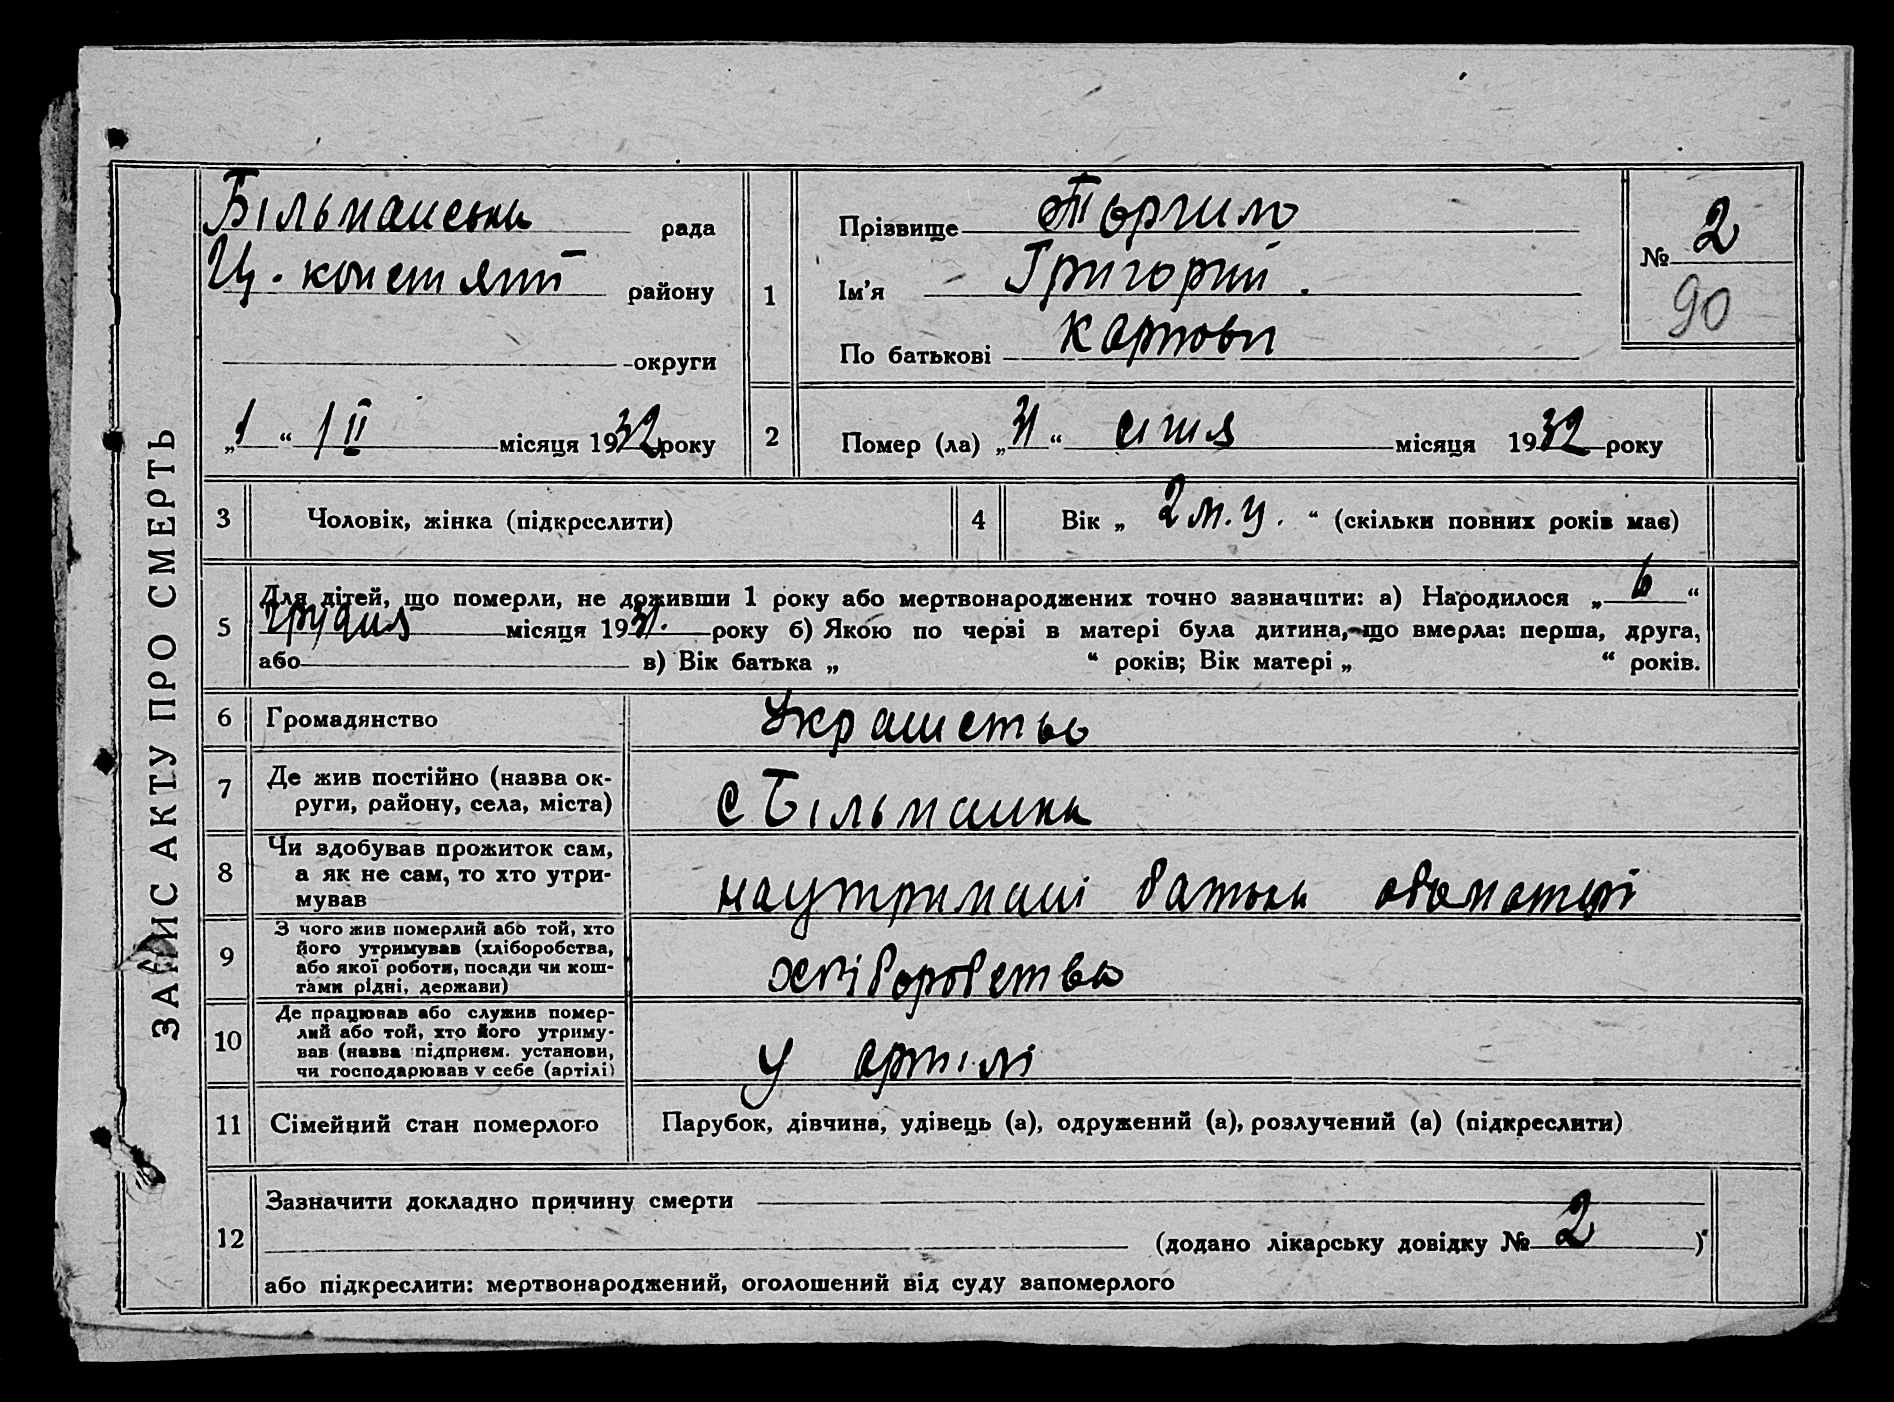 ЗАПИС АКТУ ПРО СМЕРТЬ
Більманська рада
Ц. констянт району
округи
„1“ / II місяця 1932 року
1
Прізвище
Ім'я Григорій.
По батькові Карпови
№ 2
90
2 Помер (ла) „31“ січня місяця 1932 року
3 Чоловік, жінка (підкреслити)
4 Вік „2 м. у.“ (скільки повних років має)
5 Для дітей, що померли, не доживши 1 року або мертвонароджених точно зазначити: а) Народилося „6“
грудня місяця 1931. року б) Якою по черві в матері була дитина, що вмерла: перша, друга,
або в) Вік батька „ “ років; Вік матері „ “ років.
6 Громадянство Украінство
7 Де жив постійно (назва ок-
руги, району, села, міста) с Більманка
8 Чи здобував прожиток сам,
а як не сам, то хто утри-
мував
наутримані батька або матері
9 З чого жив померлий або той, хто
його утримував (хліборобства,
або якої роботи, посади чи кош-
тами рідні, держави)
хліборобство
10 Де працював або служив помер-
лий або той, хто його утриму-
вав (назва підприєм. установи,
чи господарював у себе (артілі)
у артілі
11 Сімейний стан померлого Парубок, дівчина, удівець (а), одружений (а), розлучений (а) (підкреслити)
12 Зазначити докладно причину смерти
(додано лікарську довідку № 2 )
або підкреслити: мертвонароджений, оголошений від суду запомерлого